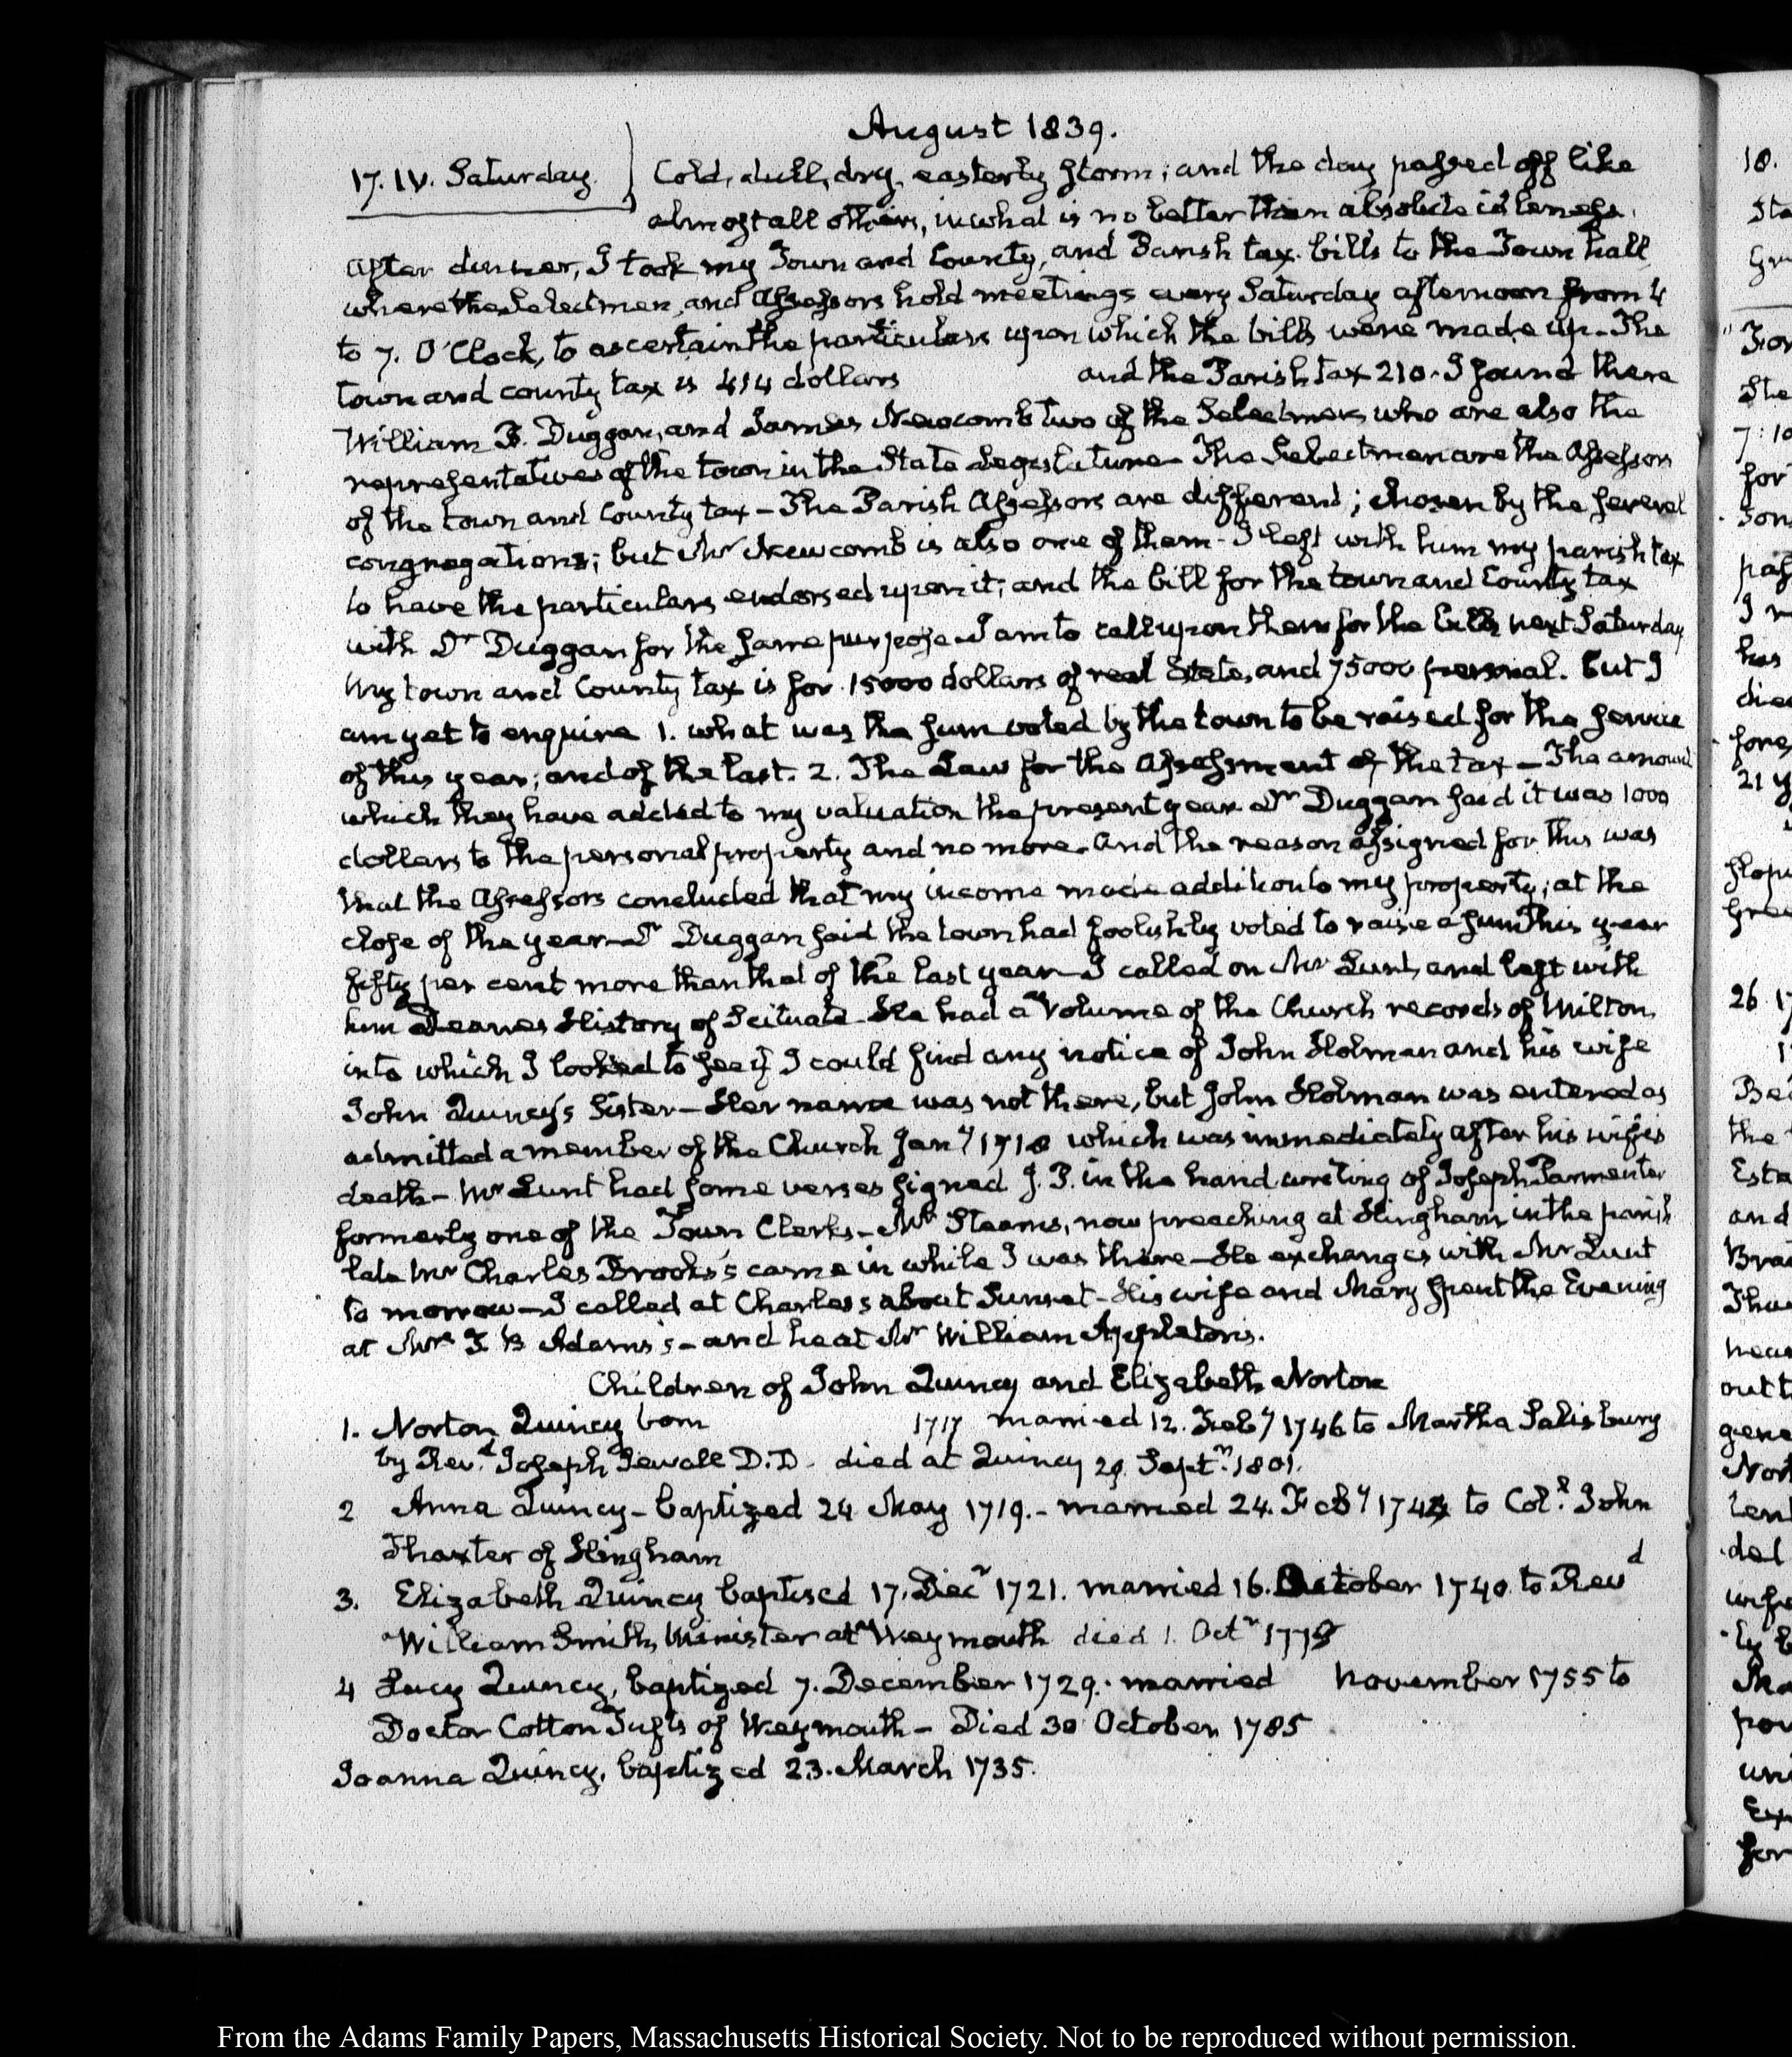 August 1839.
17. IV. Saturday. Cold, dull, dry, easterly storm; and the day passed off like
almost all others, in what is no better than absolute idleness.
After dinner, I took my Town and County, and Parish tax-bills to the Town hall,
where the Selectmen, and Assessors hold meetings every Saturday afternoon from 4
to 7. O'Clock, to ascertain the particulars upon which the bills were made up - The
town and county tax is 414 dollars and the Parish tax 210. I found there
William B. Duggan, and James Newcomb two of the Selectmen who are also the
representatives of the town in the State Legislature - The Selectmen are the Assessors
of the town and County tax - The Parish Assessors are different; chosen by the several
congregations; but Mr Newcomb is also one of them - I left with him my parish tax
to have the particulars endorsed upon it; and the bill for the town and County tax
with Dr Duggan for the same purpose - I am to call upon them for the bills next Saturday
My town and County tax is for 15000 dollars of real State, and 75000 personal. But I
am yet to enquire 1. what was the sum voted by the town to be raised for the service
of this year; and of the last. 2. The Law for the assessment of the tax - The amount
which they have added to my valuation the present year Dr Duggan said it was 1000
dollars to the personal property and no more - and the reason assigned for this was
that the Assessors concluded that my income made addition to my property; at the
close of the year - Dr Duggan said the town had foolishly voted to raise a sum this year
fifty per cent more than that of the last year - I called on Mr Lunt, and left with
him Deanes History of Scituate - He had a volume of the Church records of Milton,
into which I looked to see if I could find any notice of John Holman and his wife
John Quincy's Sister - Her name was not there, but John Holman was entered as
admitted a member of the Church Jany 1718 which was immediately after his wife's
death - Mr Lunt had some verses signed J. P. in the hand writing of Joseph Parmenter
formerly one of the Town Clerks - Mr Stearns, now preaching at Hingham in the parish
late Mr Charles Brooks's came in while I was there - He exchanges with Mr Lunt
to morrow - I called at Charles's about Sunset - His wife and Mary spent the Evening
at Mrs T. B Adams's - and he at Mr William Appleton's.
Children of John Quincy and Elizabeth Norton
1. Norton Quincy born 1717 married 12. Feby 1746 to Martha Salisbury
by Revd Joseph Sewall D.D. died at Quincy 29. Septr 1801.
2 Anna Quincy - baptized 24 May 1719. - married 24. Feby to Coll John
Thaxter of Hingham
3. Elizabeth Quincy baptised 17. Decr 1721. married 16. October 1740. to Revd
William Smith, Minister at Weymouth died 1. Octr
4 Lucy Quincy, baptized 7. December 1729. married November 1755 to
Doctor Cotton Tufts of Weymouth - Died 30 October 1785
Joanna Quincy, baptized 23. March 1735.
From the Adams Family Papers, Massachusetts Historical Society. Not to be reproduced without permission.